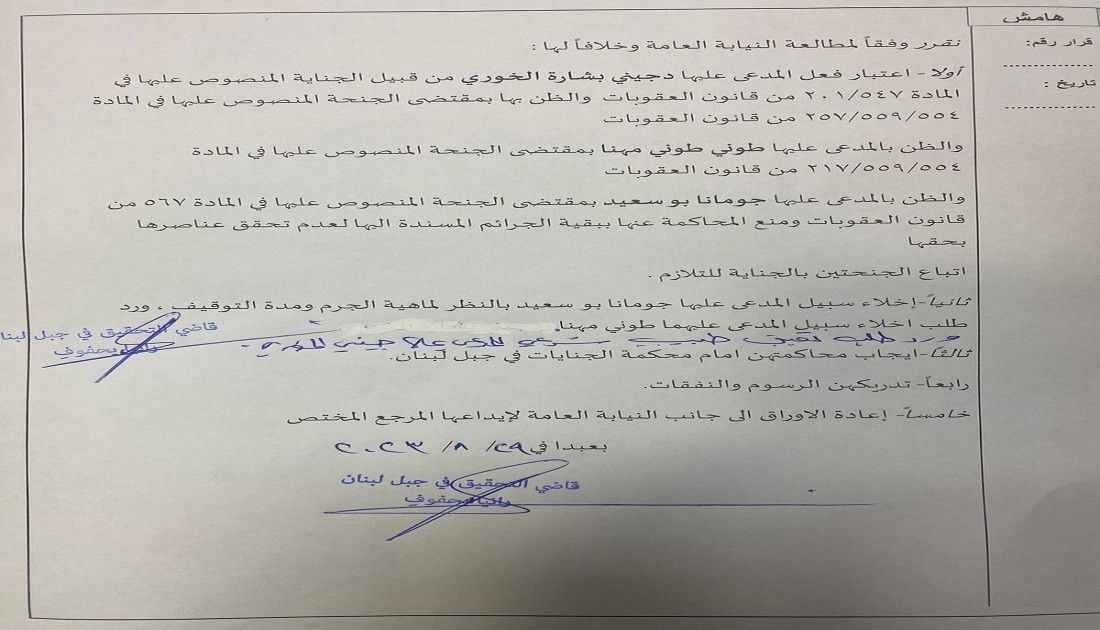 هامش
قرار رقم:
تاريخ :
نقرر وفقاً لمطالعة النيابة العامة وخلافاً لها :
أولا - اعتبار فعل المدعى عليها دجيني بشارة الخوري من قبيل الجناية المنصوص عليها في
المادة ٢٠١/٥٤٧ من قانون العقوبات والظن بها بمقتضى الجنحة المنصوص عليها في المادة
٢٥٧/٥٥٩/٥٥٤ من قانون العقوبات
والظن بالمدعى عليها طوني طوني مهنا بمقتضى الجنحة المنصوص عليها في المادة
٢١٧/٥٥٩/٥٥٤ من قانون العقوبات
والظن بالمدعى عليها جومانا بو سعيد بمقتضى الجنحة المنصوص عليها في المادة ٥٦٧ من
قانون العقوبات ومنع المحاكمة عنها ببقية الجرائم المسندة اليها لعدم تحقق عناصرها
بحقها
اتباع الجنحتين بالجناية للتلازم .
ثانياً-إخلاء سبيل المدعى عليها جومانا بو سعيد بالنظر لماهية الجرم ومدة التوقيف . ورد
طلب اخلاء سبيل المدعى عليهما طوني مهنا.
قاضي التحقيق في جبل لبنان
رانيا يحفوف
ورد طلب طبيب شرعي للمدعى عليها جيني الخوري.
ثالثاً-ايجاب محاكمتهن امام محكمة الجنايات في جبل لبنان.
رابعاً- تدريكهن الرسوم والنفقات.
خامساً- إعادة الاوراق الى جانب النيابة العامة لإيداعها المرجع المختص
بعبدا في ٢٩/ ٨/ ٢٠٢٣
قاضي التحقيق في جبل لبنان
رانيا يحفوف